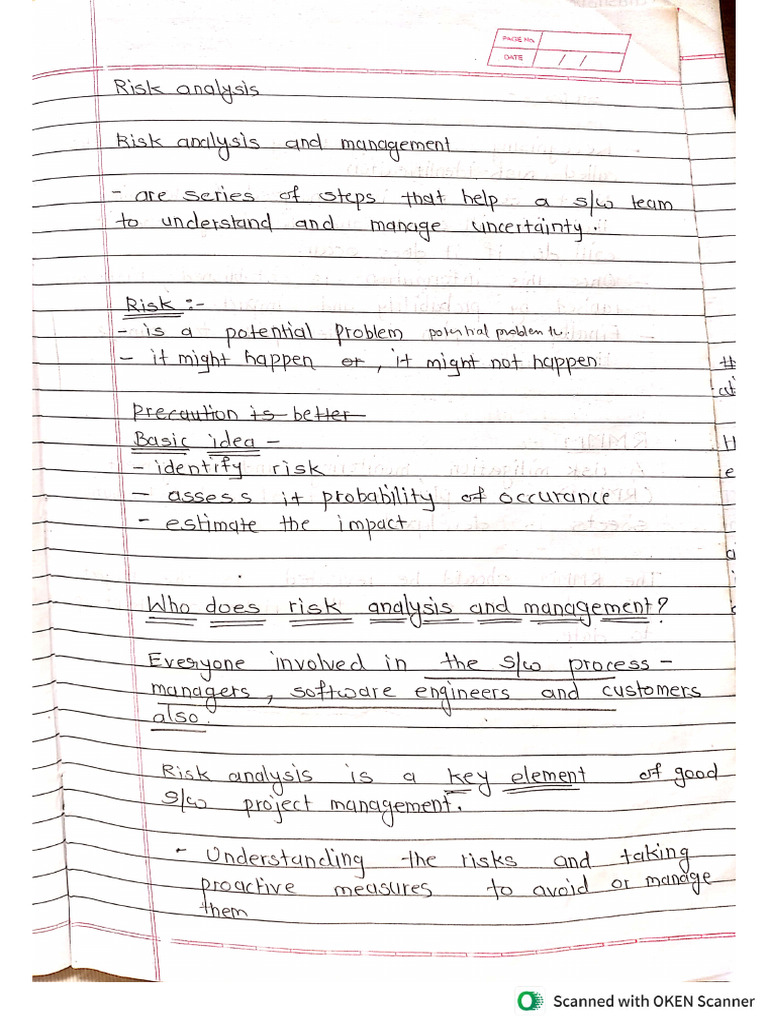 PAGE No.
DATE / /
Risk analysis
Risk analysis and management
- are series of steps that help a s/w team
to understand and manage uncertainty.
Risk :-
- is a potential problem potential problem
- it might happen or, it might not happen
Precaution is better
Basic idea -
- identify risk
- assess it probability of occurance
- estimate the impact
Who does risk analysis and management?
Everyone involved in the s/w process -
managers, software engineers and customers
also.
Risk analysis is a key element of good
s/w project management.
- Understanding the risks and taking
proactive measures to avoid or manage
them
Scanned with OKEN Scanner